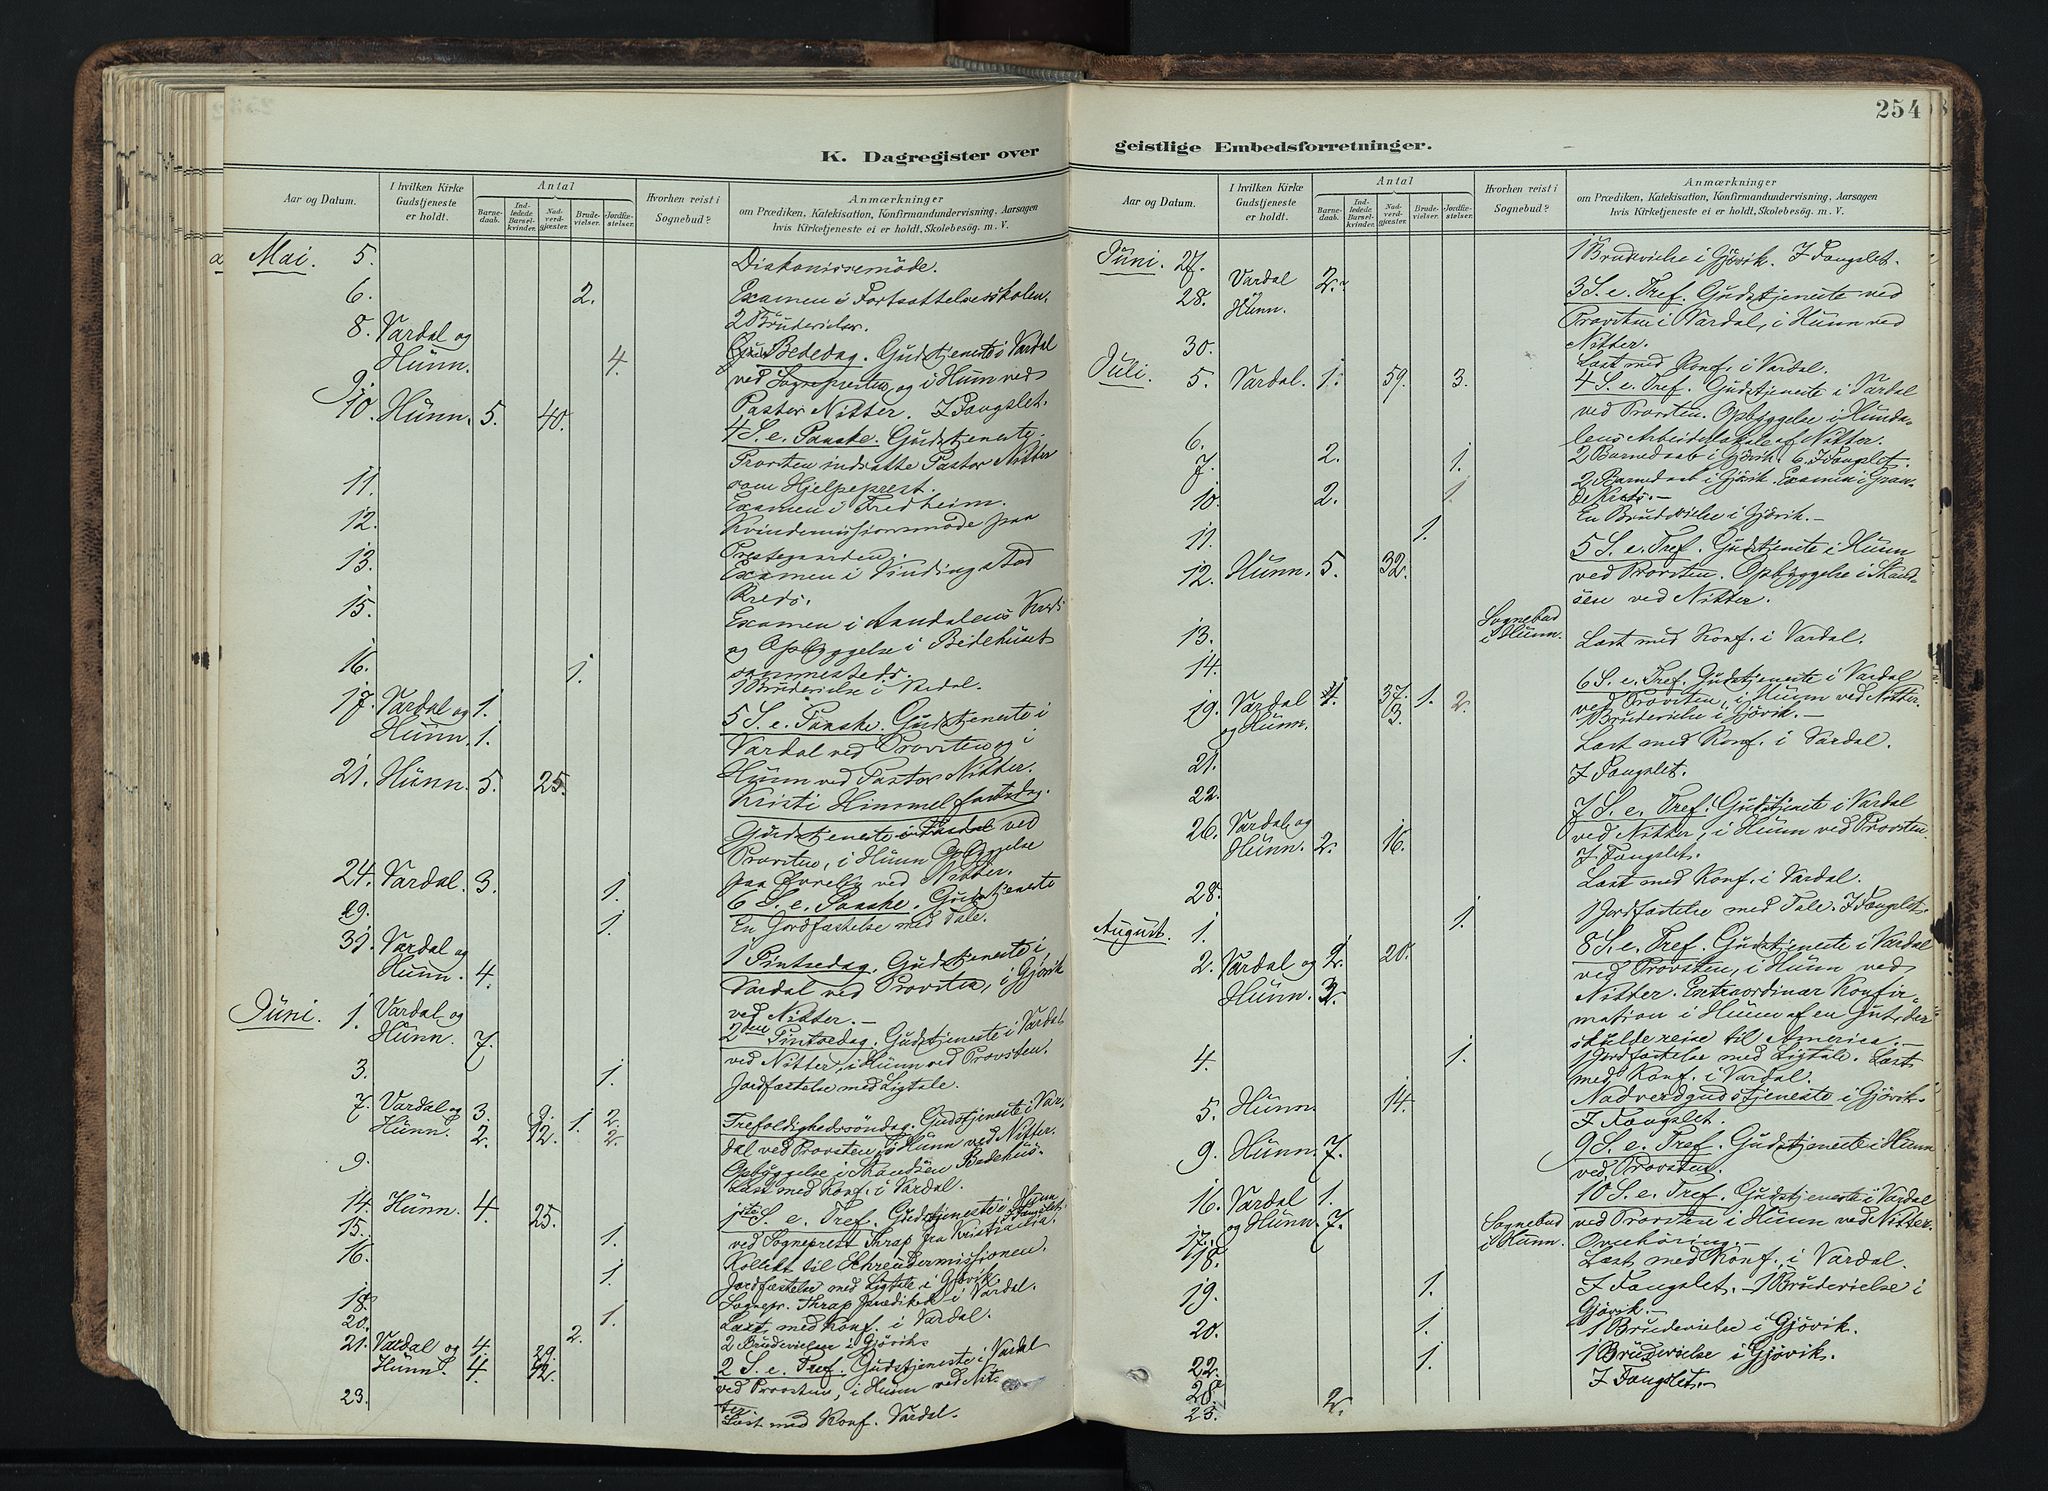 254
K. Dagregister over
Aar og Datum.
I hvilken Kirke Gudstjeneste er holdt.
Antal
Barne-daab.
Ind-ledede Barsel-kvinder.
Nad-verd-gjæster.
Brude-vielser.
Jordfæ-stelser.
Hvorhen reist i Sognebud?
Anmærkninger
om Prædiken, Katekisation, Konfirmandundervisning, Aarsagen
hvis Kirketjeneste ei er holdt, Skolebesøg. m. V.
Mai. 5. Diakonissemöde.
6. 2. Examen i Fortsættelsesskolen.
2 Brudevielser.
8. Vardal og Bededag. Gudstjeneste i Vardal
Hunn. 4. ved Sognepresten og i Hunn ved
9. Pastor Nitter. I Fængslet.
10. Hunn. 5. 40. 4 S. e. Paaske. Gudstjeneste.
Provsten indsatte Pastor Nitter
som Hjelpeprest.
11. Examen i Fredheim.
12. Kvindemissionsmöde paa
Prestegaarden.
13. Examen i Vindingstad
Kreds.
15. Examen i Aandalens Kreds
og Opbyggelse i Bedehuset
sammesteds.
16. 1. 1 Brudevielse i Vardal.
17. Vardal og 1. 5 S. e. Paaske. Gudstjeneste i
Hunn 1. Vardal ved Provsten og i
Hunn ved Pastor Nitter.
21. Hunn. 5. 25. Kristi Himmelfartsdag.
Gudstjeneste i Vardal ved
Provsten, i Hunn Opbyggelse
paa Øvreby ved Nitter.
24. Vardal. 3. 1. 6 S. e. Paaske. Gudstjeneste
29. 1. En Jordfæstelse med Tale.
31. Vardal og 1 Pintsedag. Gudstjeneste i
Hunn. 4. Vardal ved Provsten, i Gjövik
ved Nitter.
Juni. 1. Vardal og 2den Pintsedag. Gudstjeneste i Vardal
Hunn. 7. ved Nitter, i Hunn ved Provsten.
3. 1. Jordfæstelse med Ligtale.
7. Vardal og 3. 9. 1. 2. Trefoldighedssöndag. Gudstjeneste i Var-
Hunn. 2. 12. 2. dal ved Provsten, i Hunn ved Nitter.
Opbyggelse i Skandsen Bedehus.
9. Læst med Konf. i Vardal.
14. Hunn. 4. 25. 1ste S. e. Tref. Gudstjeneste i Hunn
ved Sogneprest Thrap fra Kristiania. I Fængslet.
15. 1. Kollekt til Schreudermissionen.
16. 1. Jordfæstelse med Ligtale i Gjövik.
Sognepr. Thrap prædiket i Vardal.
18. 1. Læst med Konf. i Vardal.
20. 2. 2 Brudevielser i Gjövik
21. Vardal og 4. 29. 2 S. e. Tref. Gudstjeneste i Vardal
Hunn. 4. 12. ved Provsten, i Hunn ved Nit-
ter.
23. Læst med Konf. Vardal.
geistlige Embedsforretninger.
Aar og Datum.
I hvilken Kirke Gudstjeneste er holdt.
Antal
Barne-daab.
Ind-ledede Barsel-kvinder.
Nad-verd-gjæster.
Brude-vielser.
Jordfæ-stelser.
Hvorhen reist i Sognebud?
Anmærkninger
om Prædiken, Katekisation, Konfirmandundervisning, Aarsagen
hvis Kirketjeneste ei er holdt, Skolebesøg. m. V.
Juni. 27. 1 Brudevielse i Gjövik. I Fængslet.
28. Vardal 2. 3 S. e. Tref. Gudstjeneste ved
Hunn. Provsten i Vardal, i Hunn ved
Nitter.
30. Læst med Konf. i Vardal.
Juli. 5. Vardal. 1. 59. 3. 4 S. e. Tref. Gudstjeneste i Vardal
ved Provsten. Opbyggelse i Hunda-
lens Arbeiderlokale af Nitter.
6. 2. 2 Barnedaab i Gjövik. I Fængslet.
7. 1.
10. 2. 1. 2 Barnedaab i Gjövik. Examen i Gran-
de Kreds.
11. 1. En Brudevielse i Gjövik.
12. Hunn. 5. 32. 5 S. e. Tref. Gudstjeneste i Hunn
ved Provsten. Opbyggelse i Skand-
sen ved Nitter.
13. Sognebud
i Hunn.
14. Læst med Konf. i Vardal.
19. Vardal 4. 37. 1. 2. 6 S. e. Tref. Gudstjeneste i Vardal
og Hunn. 3. ved Provsten, i Hunn ved Nitter.
1 Brudevielse i Gjövik.
21. Læst med Konf. i Vardal.
22. I Fængslet.
26. Vardal og 7 S. e. Tref. Gudstjeneste i Vardal
Hunn. 2. 16. ved Nitter, i Hunn ved Provsten.
I Fængslet.
28. Læst med Konf. i Vardal.
August. 1. 1. 1 Jordfæstelse med Tale. I Fængslet.
2. Vardal og 2. 20. 8 S. e. Tref. Gudstjeneste i Vardal
Hunn. 3. ved Provsten, i Hunn ved
Nitter. Extraordinær Konfir-
mation i Hunn af en Gut, der
skulde reise til America.
4. 1. 1 Jordfæstelse med Ligtale. Læst
med Konf. i Vardal.
5. Hunn. 14. Nadverdgudstjeneste i Gjövik.
I Fængslet.
9. Hunn. 7. 9 S. e. Tref. Gudstjeneste i Hunn
ved Provsten.
16. Vardal 1. 10 S. e. Tref. Gudstjeneste i Vardal
og Hunn. 7. ved Provsten i Hunn ved Nitter.
17. Sognebud
i Hunn. Overhöring.
18. Læst med Konf. i Vardal.
19. 1. I Fængslet. 1 Brudevielse i
Gjövik.
20. 1. 1 Brudevielse i Gjövik.
22. 1. 1 Brudevielse i Gjövik.
28. I Fængslet.
23. 2.